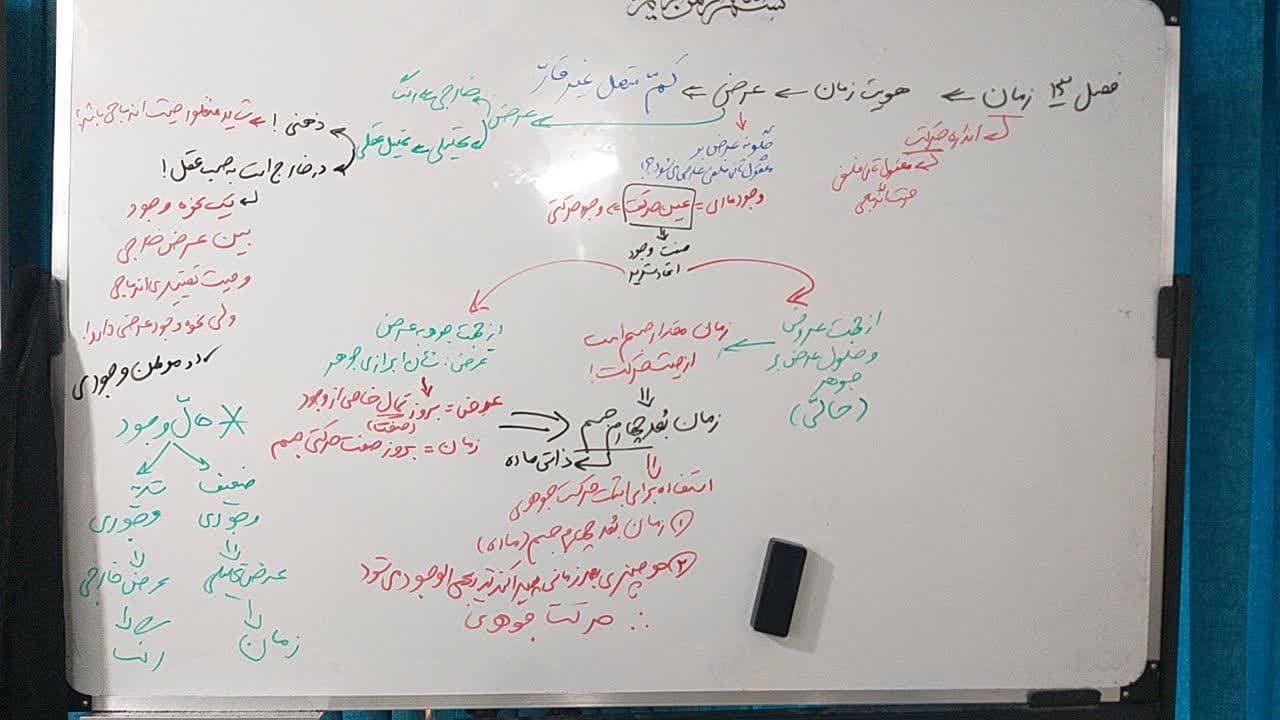 فصل ۱۳ زمان ← هویت زمان ← عرضی ← کمّ متصل غیر قارّ
اندازه حرکت
معقول ثانی فلسفی
عرض
خارجی ← رنگ
تحلیلی ← تحلیل عقلی
ذهنی! ← شاید منظور حیث اندماجی باشد!
در خارج است به حسب عقل!
یک نحوه وجود
بین عرض خارجی
و حیث تقییدی اندماجی
ولی نحوه وجود عرضی دارد!
چگونه عرض بر
معقول ثانی فلسفی عارض می‌شود؟!
وجود مادی = عین حرکت = وجود حرکتی
صفت وجود
اتحاد شدید
از جهت عروض
و حلول عرض بر
جوهر
(حالّی)
زمان مقدار جسم است
از حیث حرکت!
از جهت جوهر به عرض
عرض: شأن ابرازی جوهر
عرض = بروز کمال خاصی از وجود
(صفت)
زمان = بروز صفت حرکتی جسم
زمان بُعد چهارم جسم
ذاتی ماده
استفاده برای اثبات حرکت جوهری
① زمان بُعد چهارم جسم (ماده)
② هر چیزی بعد زمانی پیدا کند تدریجی الوجود می‌شود
∴ حرکت جوهری
موطن وجودی
* حالّ وجود
ضعیف
وجودی
⇓
عرض تحلیلی
⇓
زمان
شدید
وجودی
⇓
عرض خارجی
⇓
رنگ